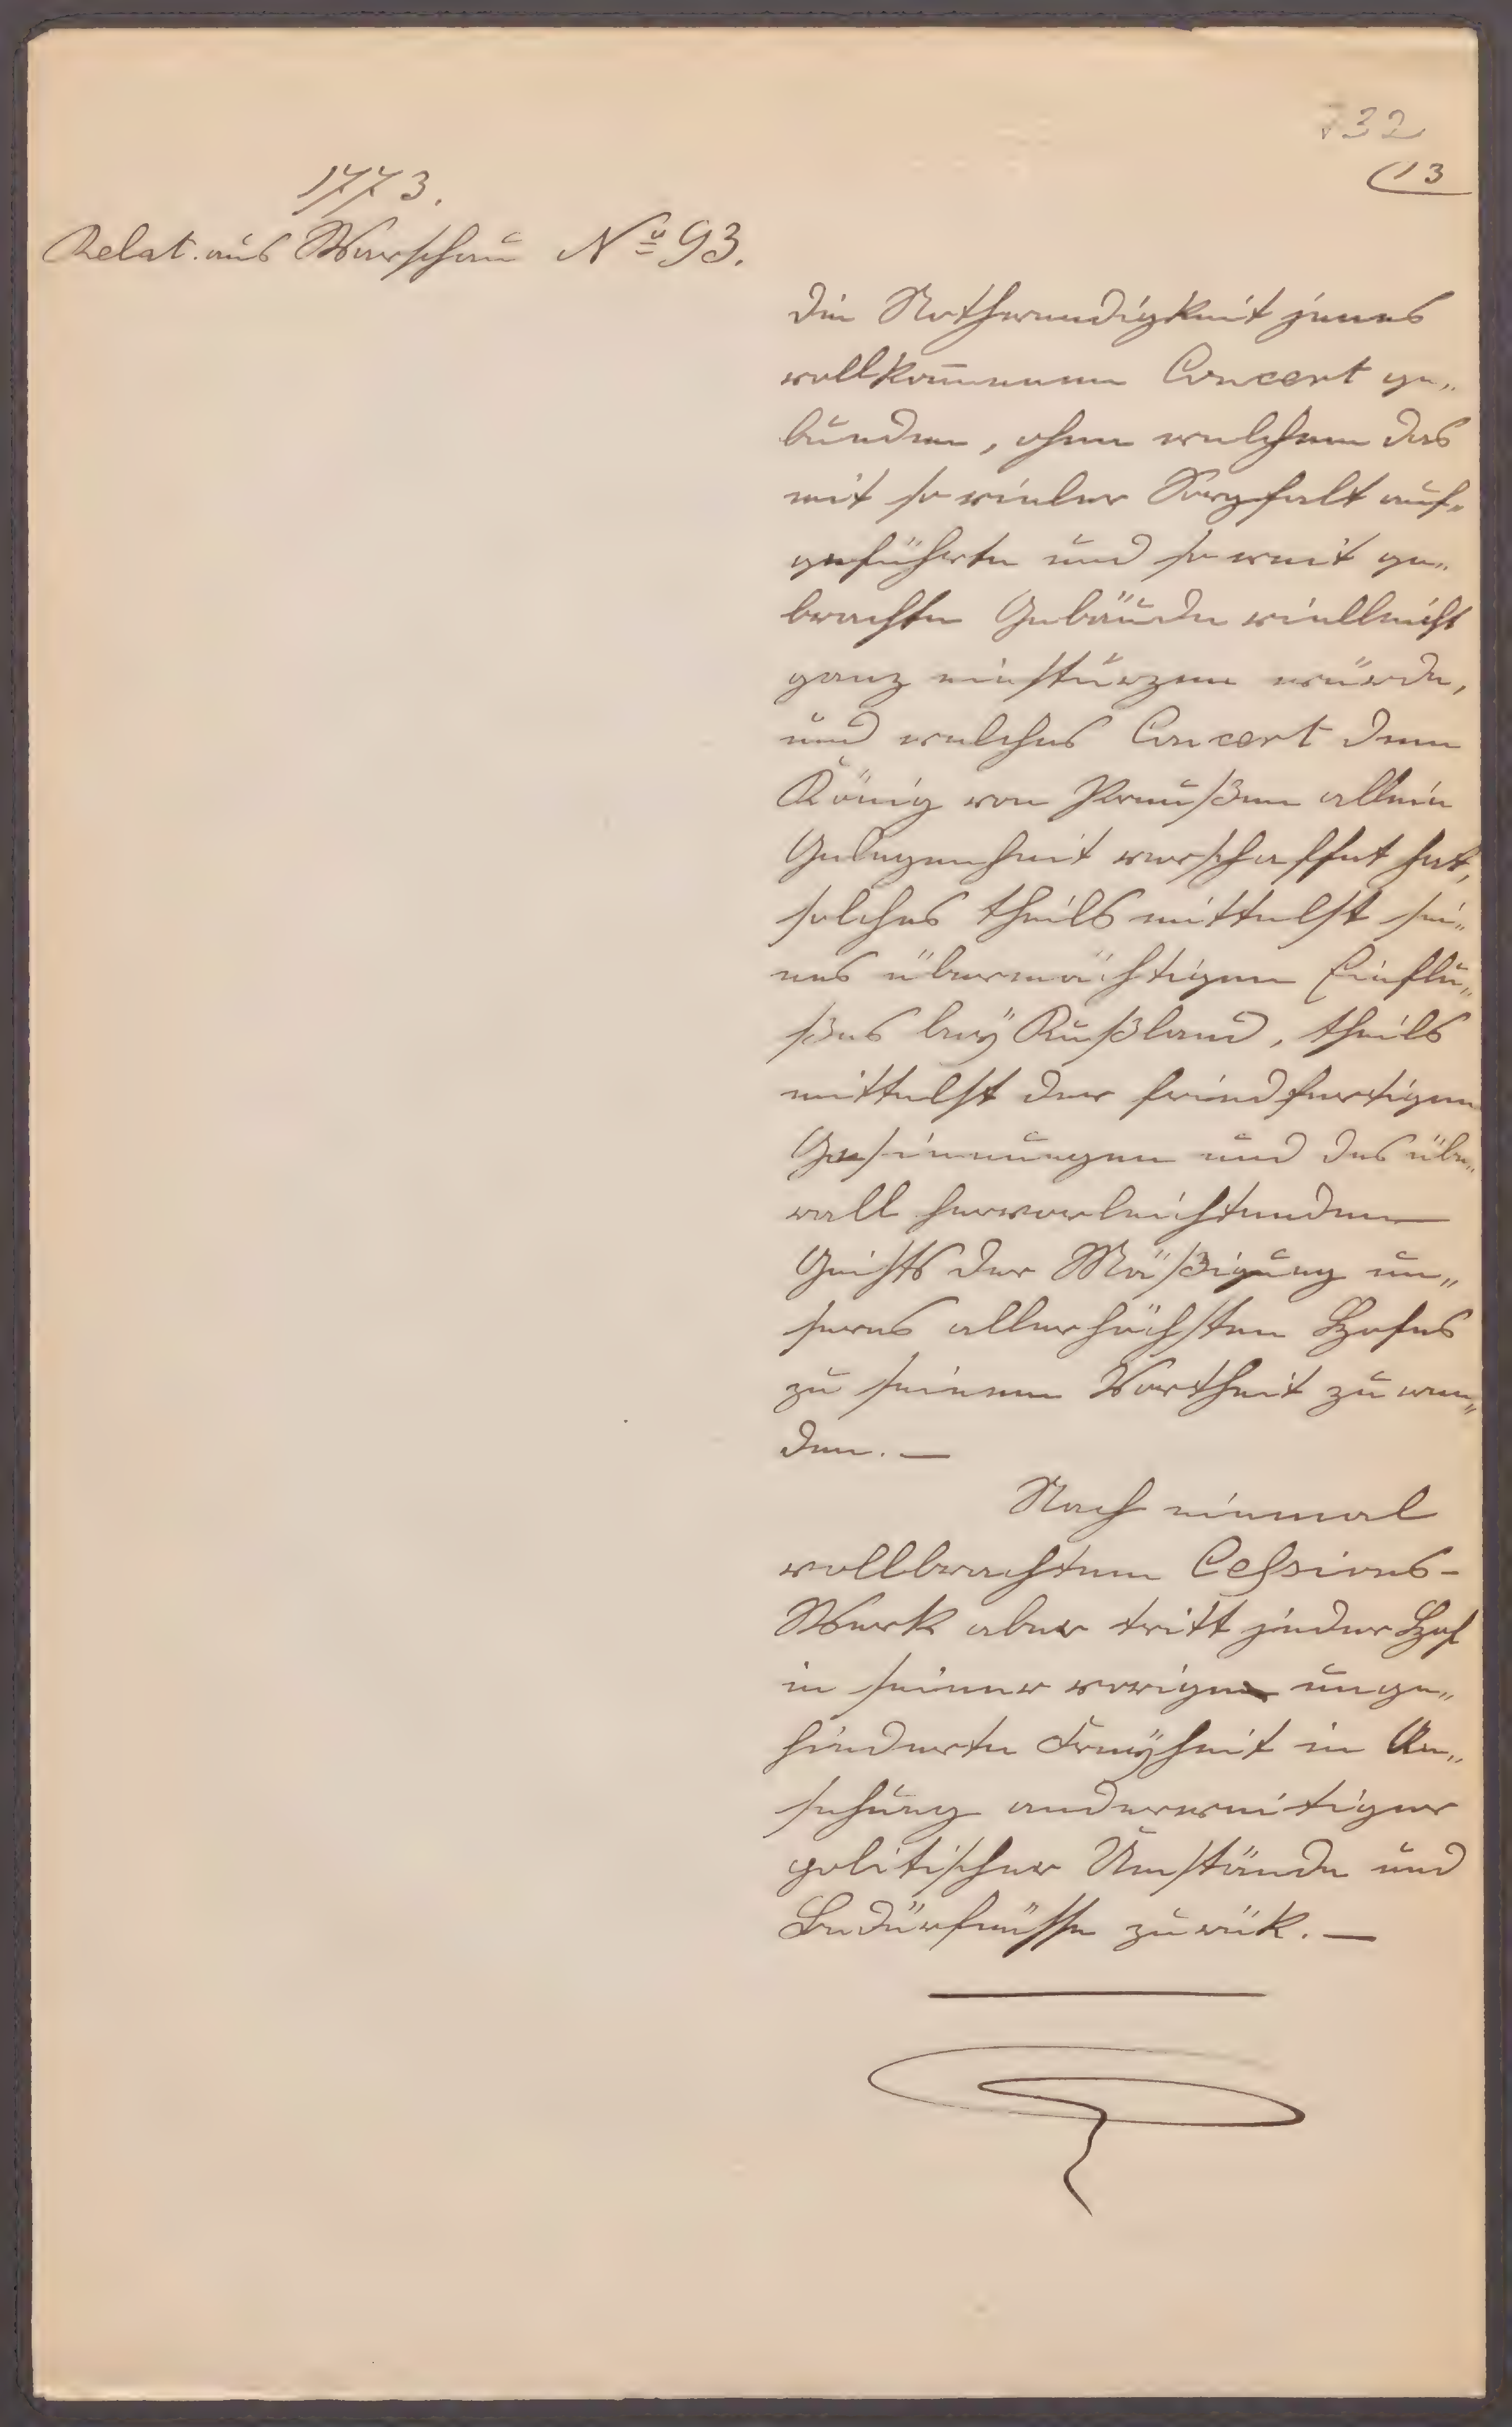 732
(13
1773.
Relat. aus Warschau No 93.
die Nothwendigkeit jenes
vollkom̅enen Concert ge„
bunden, ohne welchem das
mit so vieler Sorgfalt auf„
geführte und so weit ge„
brachte Gebäude vielleicht
ganz einstürzen würde,
und welches Concert dem
König von Preußen allein
Gelegenheit verschaffet hat,
solches theils mittelst sei„
nes übermächtigen Einflu„
ßes beÿ Rußland, theils
mittelst der friedfertigen
Gesinnungen und des übe„
rall hervorleichtenden
Geists der Mäßigung un„
seres allerhöchsten Hofes
zu seinem Vortheil zu wen„
den. —
Nach einmal
vollbrachtem Cessions-
Werk aber tritt jeder Hof
in seiner vorigen unge„
hinderte Freÿheit in An„
sehung anderweitiger
politischer Umstände und
Bedürfnüsse zurük. —